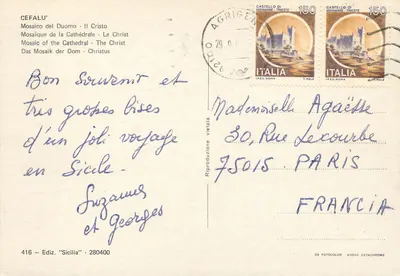 CEFALU'
Mosaico del Duomo - Il Cristo
Mosaïque de la Cathédrale - Le Christ
Mosaic of the Cathedral - The Christ
Das Mosaik der Dom - Christus
Bon Souvenir et
très grosses bises
d'un joli voyage
en Sicile.
Suzanne
et Georges
416 - Ediz. "Sicilia" - 280400
Riproduzione vietata
AGRIGEN
CASTELLO DI
150
ITALIA
CASTELLO DI
150
ITALIA
Mademoiselle Agaësse
30, Rue Lecourbe
75015 PARIS
FRANCIA